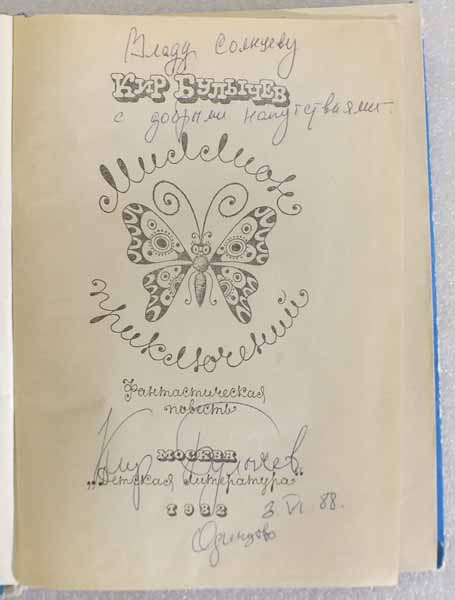 Владу Солнцеву
Кир Булычев
с добрыми напутствиями.
Миллион
приключений
Фантастическая
повесть
Кир Булычев
Москва
„Детская литература“
1982
3 VI 88.
Одинцово